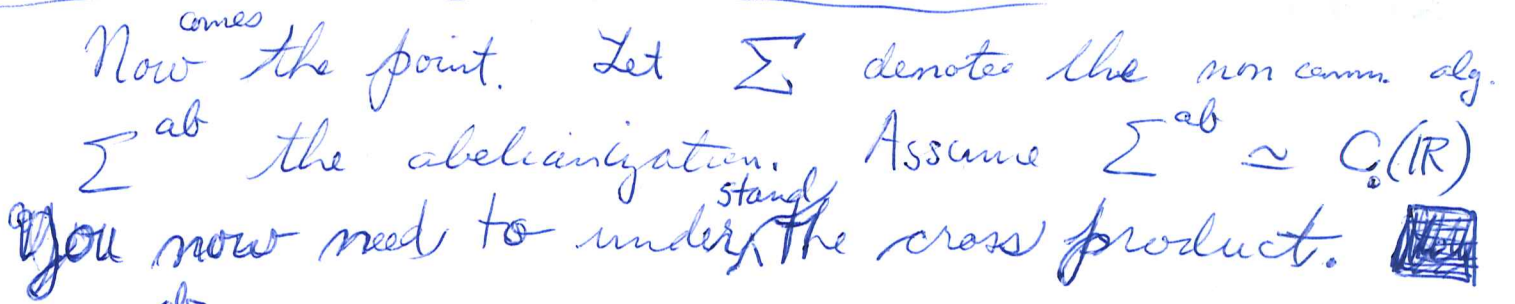 Now comes the point. Let Σ denotes the non comm. alg.
Σ^ab the abelianization. Assume Σ^ab ≃ C.(ℝ)
You now need to understand the cross product.